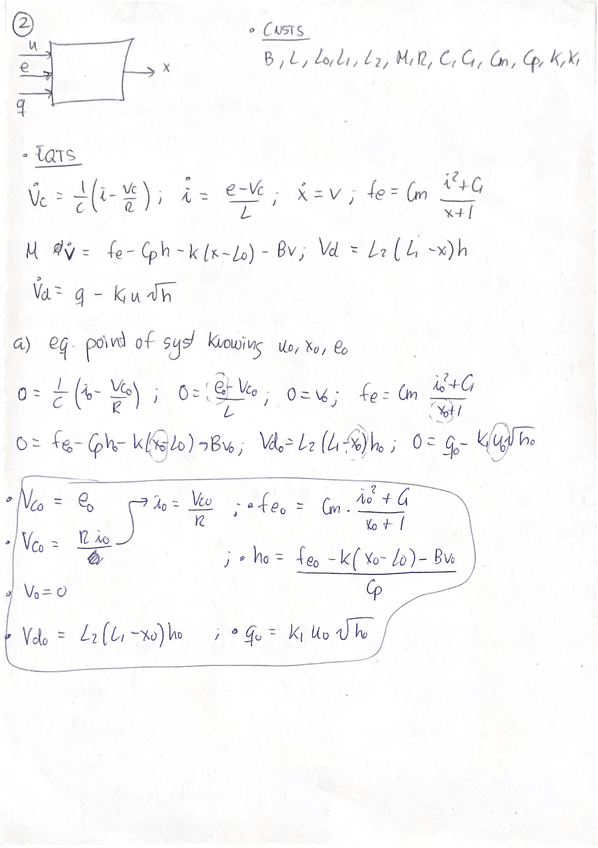 ②
• CNSTS
B, L, L0, L1, L2, M, R, C, C1, Cm, Cp, K, K1
u
e
q
x
• EQTS
V̇c = 1/C (i - Vc/R) ; i̇ = (e - Vc)/L ; ẋ = v ; fe = Cm (i² + C1)/(x+1)
M v̇ = fe - Cph - k(x - L0) - Bv ; Vd = L2 (L1 - x)h
V̇d = q - K1 u √h
a) eq. point of syst knowing u0, x0, e0
0 = 1/C (i0 - Vc0/R) ; 0 = (e0 - Vc0)/L ; 0 = v0 ; fe = Cm (i0² + C1)/(x0+1)
0 = fe0 - Cph0 - k(x0 - L0) - Bv0 ; Vd0 = L2 (L1 - x0) h0 ; 0 = q0 - K1 u0 √h0
• Vc0 = e0 → i0 = Vc0/R ; • fe0 = Cm · (i0² + C1)/(x0 + 1)
• Vc0 = R i0
; • h0 = (fe0 - k(x0 - L0) - Bv0)/Cp
• V0 = 0
• Vd0 = L2 (L1 - x0) h0 ; • q0 = K1 u0 √h0